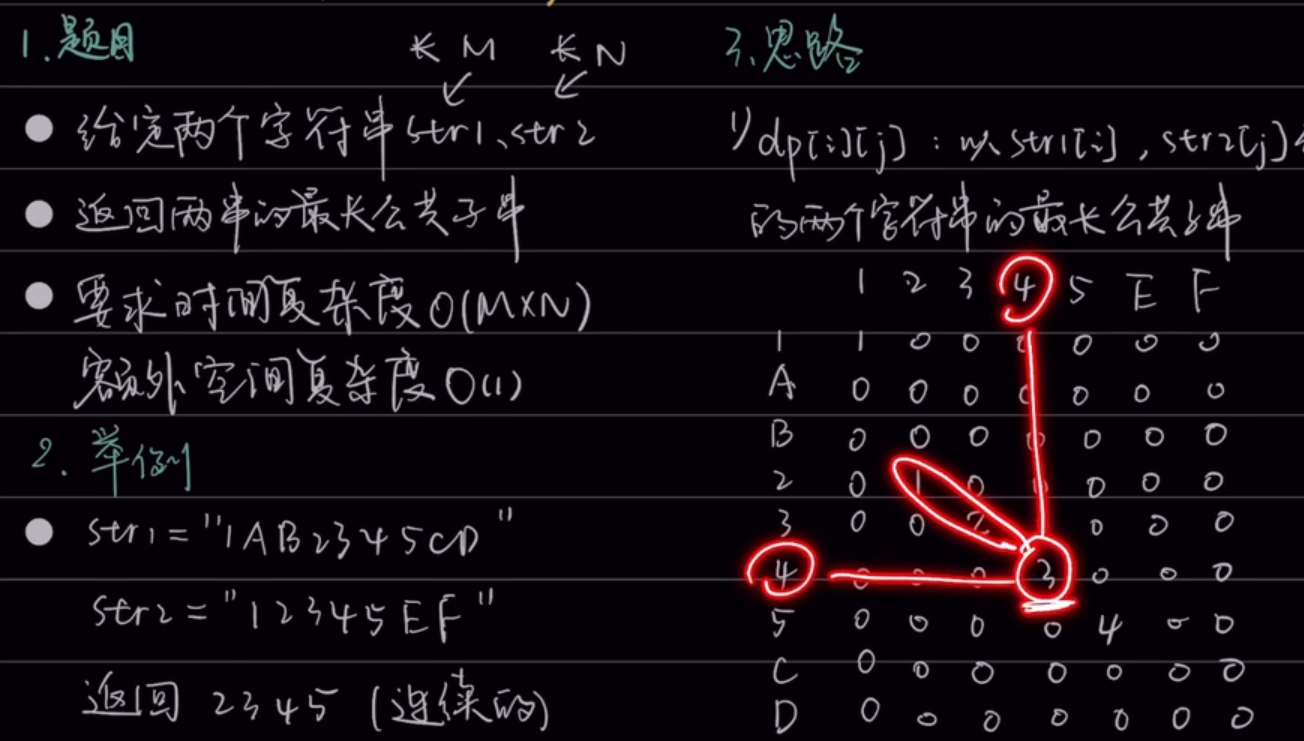 1.题目
长 M 长 N
给定两个字符串str1、str2
返回两串的最长公共子串
要求时间复杂度O(M×N)
额外空间复杂度O(1)
2.举例
str1="1AB2345CD"
str2="12345EF"
返回 2345 (连续的)
3.思路
1) dp[i][j]:以str1[i],str2[j]
的两个字符串的最长公共子串
1 2 3 4 5 E F
1 1 0 0 0 0 0 0
A 0 0 0 0 0 0 0
B 0 0 0 0 0 0 0
2 0 1 0 0 0 0 0
3 0 0 2 0 0 0
4 0 0 0 3 0 0 0
5 0 0 0 0 4 0 0
C 0 0 0 0 0 0 0
D 0 0 0 0 0 0 0